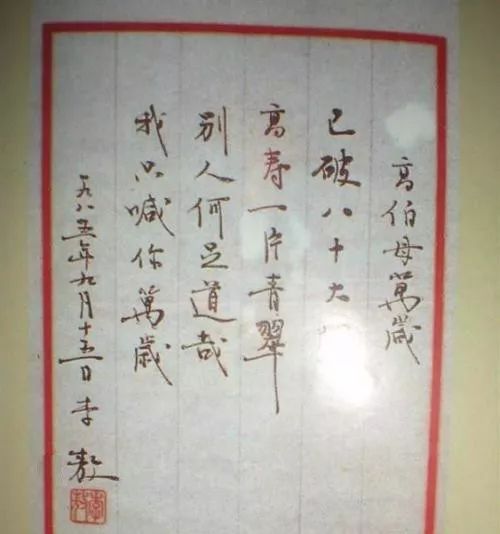 高伯母萬歲
已破八十大
高寿一片青翠
別人何足道哉
我只喊你萬歲
一九八五年九月十五日 李敖